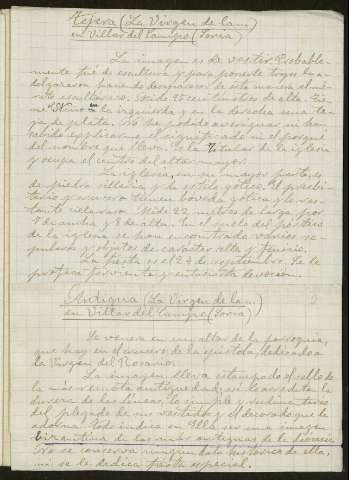 Tejera (La Virgen de la ...)
en Villar del Campo (Soria)
La imagen es de vestir. Probable-
mente fué de escultura y para ponerle trajes la a-
delgazaron, privándola de esta manera del mé-
rito escultórico. Mide 95 centímetros de alta. Tie-
ne el Niño en la izquierda y en la derecha una te-
ja de plata. No he podido averiguar ni han
sabido explicarme el significado ni el porqué
del nombre que lleva. Es la Titular de la iglesia
y ocupa el centro del altar mayor.
La iglesia, en su mayor parte, es
de piedra sillería y de estilo gótico. El presbi-
terio y crucero tienen bóveda gótica y la res-
tante cielo raso. Mide 22 metros de larga por
7 de ancha y 8 de alta. En el suelo del pórtico
de la iglesia se han encontrado varios se-
pulcros y objetos de carácter celta y fenicio.
La fiesta es el 24 de septiembre. Se le
profesa ferviente y entusiasta devoción.
Antigua (La Virgen de la ...)
en Villar del Campo (Soria)
Se venera en un altar de la parroquia,
que hay en el crucero de la epístola, dedicado a
la Virgen del Rosario.
La imagen lleva estampado el sello de
la más remota antigüedad, así lo acredita la
dureza de las líneas, lo simple y rudimentario
del plegado de sus vestidos y el decorado que la
adorna. Todo indica en Ella ser una imagen
bizantina de las más antiguas de la diócesis.
No se conserva ningún dato histórico de ella,
ni se le dedica fiesta especial.